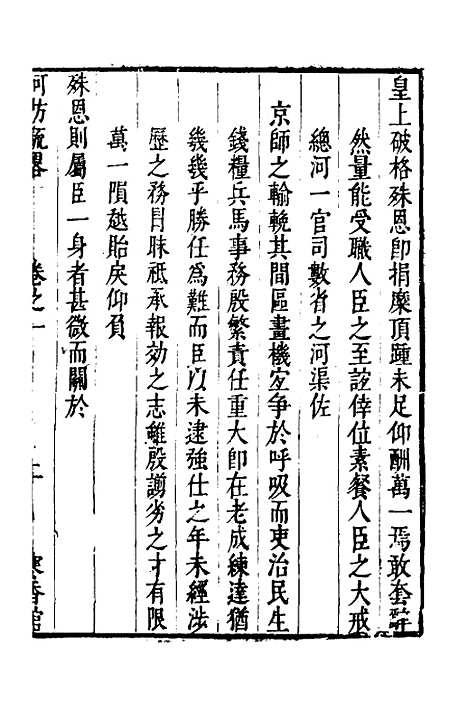 皇上破格殊恩即捐糜頂踵未足仰酬萬一焉敢套辭
然量能受職人臣之至誼倖位素餐人臣之大戒
總河一官司數省之河渠佐
京師之輸輓其間區畫機宜争於呼吸而吏治民生
錢糧兵馬事務殷繁責任重大即在老成練達猶
幾幾乎勝任為難而臣以未逮強仕之年未經涉
歷之務冐昧祗承報効之志雖殷謭劣之才有限
萬一隕越貽戾仰負
殊恩則屬臣一身者甚微而關於
河防疏畧
卷之一